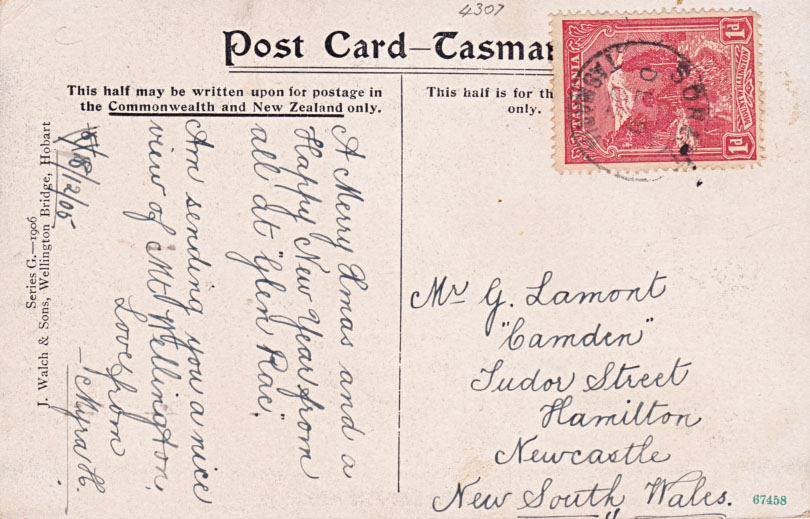 4307
Post Card–Tasman
This half may be written upon for postage in
the Commonwealth and New Zealand only.
This half is for th
only.
TASMANIA
1d
1d
SORE
Series G.—1906
J. Walch & Sons, Wellington Bridge, Hobart
18/12/05
A Merry Xmas and a
Happy New Year from
all at "Glen Rae".
Am sending you a nice
view of Mt Wellington.
Love from
— Myra H.
Mr G. Lamont
"Camden"
Tudor Street
Hamilton
Newcastle
New South Wales.
67458